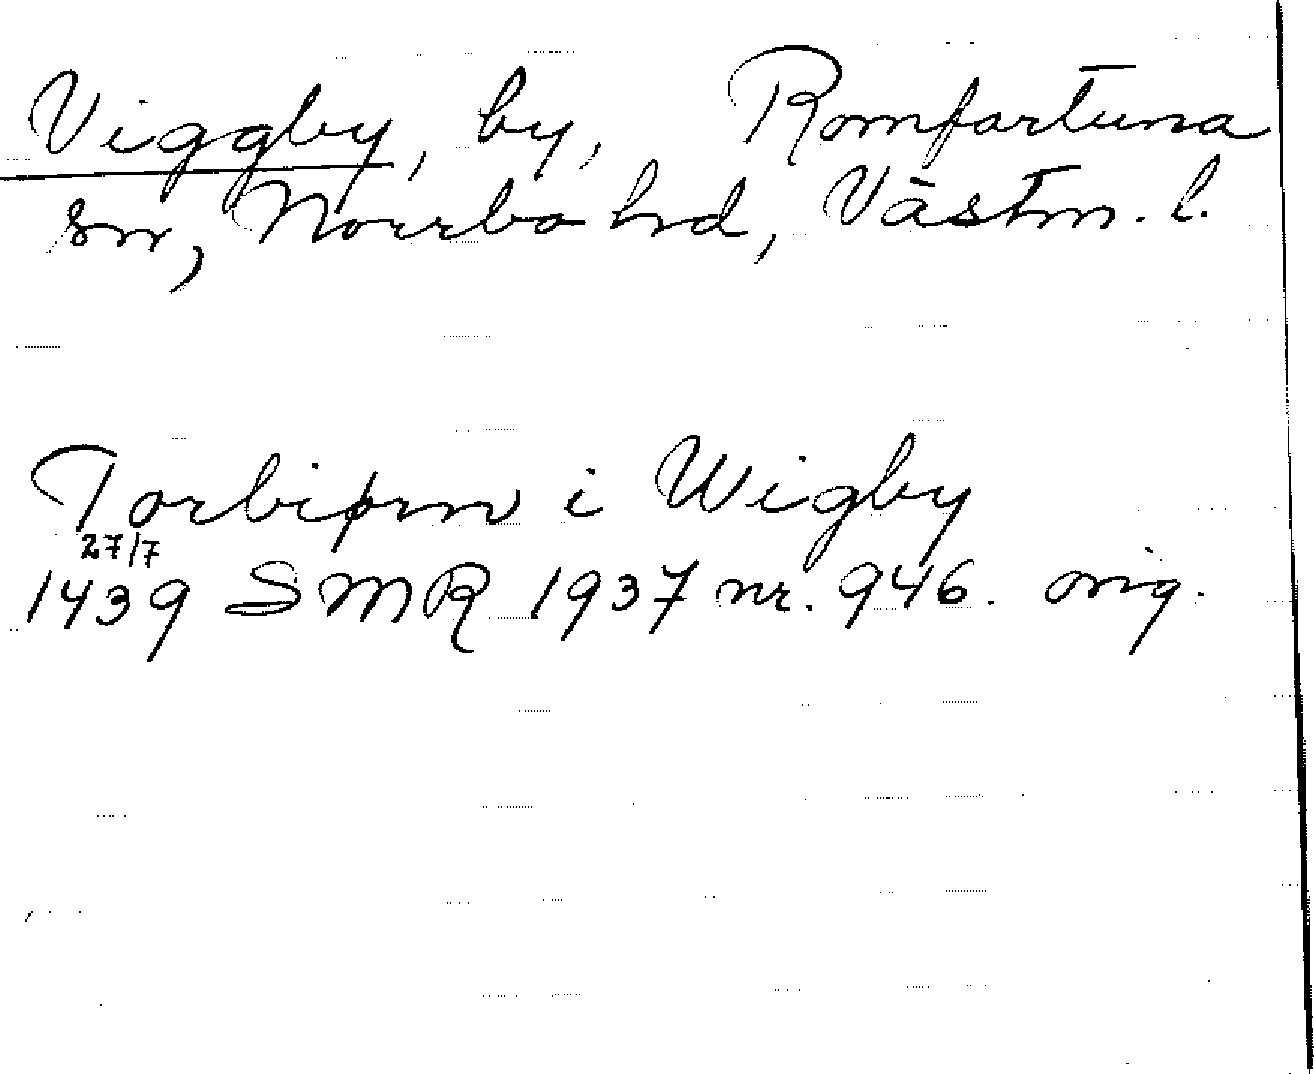 Viggby, by, Romfartuna
sn, Norrbo hd, Västm. l.
Torbiørn i Wigby
27/7
1439 SMR 1937 nr. 946. orig.